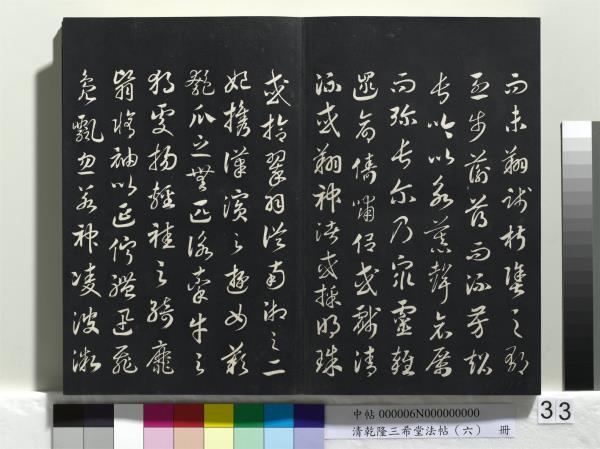 而未翔踐椒塗之郁
烈步蘅薄而流芳超
長吟以永慕聲哀厲
而彌長爾乃眾靈雜
遝命儔嘯侶或戲清
流或翔神渚或採明珠
或拾翠羽從南湘之二
妃攜漢濱之遊女歎
匏瓜之無匹詠牽牛之
獨處揚輕袿之綺靡
翳脩袖以延佇體迅飛
鳧飄忽若神凌波微
中帖 000006N000000000
清乾隆三希堂法帖（六） 冊
33